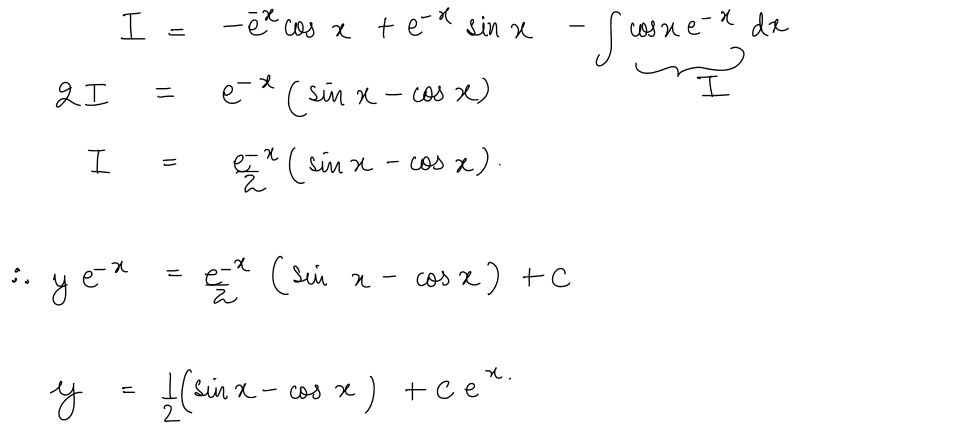 I = -e⁻ˣ cos x + e⁻ˣ sin x - ∫ cos x e⁻ˣ dx
I
2I = e⁻ˣ (sin x - cos x)
I = e⁻ˣ/2 (sin x - cos x).
∴ y e⁻ˣ = e⁻ˣ/2 (sin x - cos x) + c
y = 1/2 (sin x - cos x) + c eˣ.